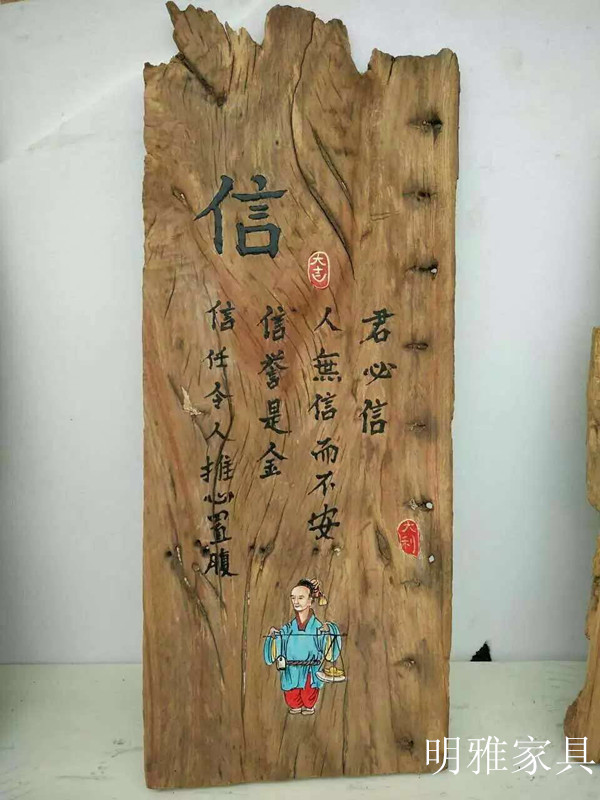 信
大吉
君必信
人無信而不安
信誉是金
信任令人推心置腹
大利
明雅家具